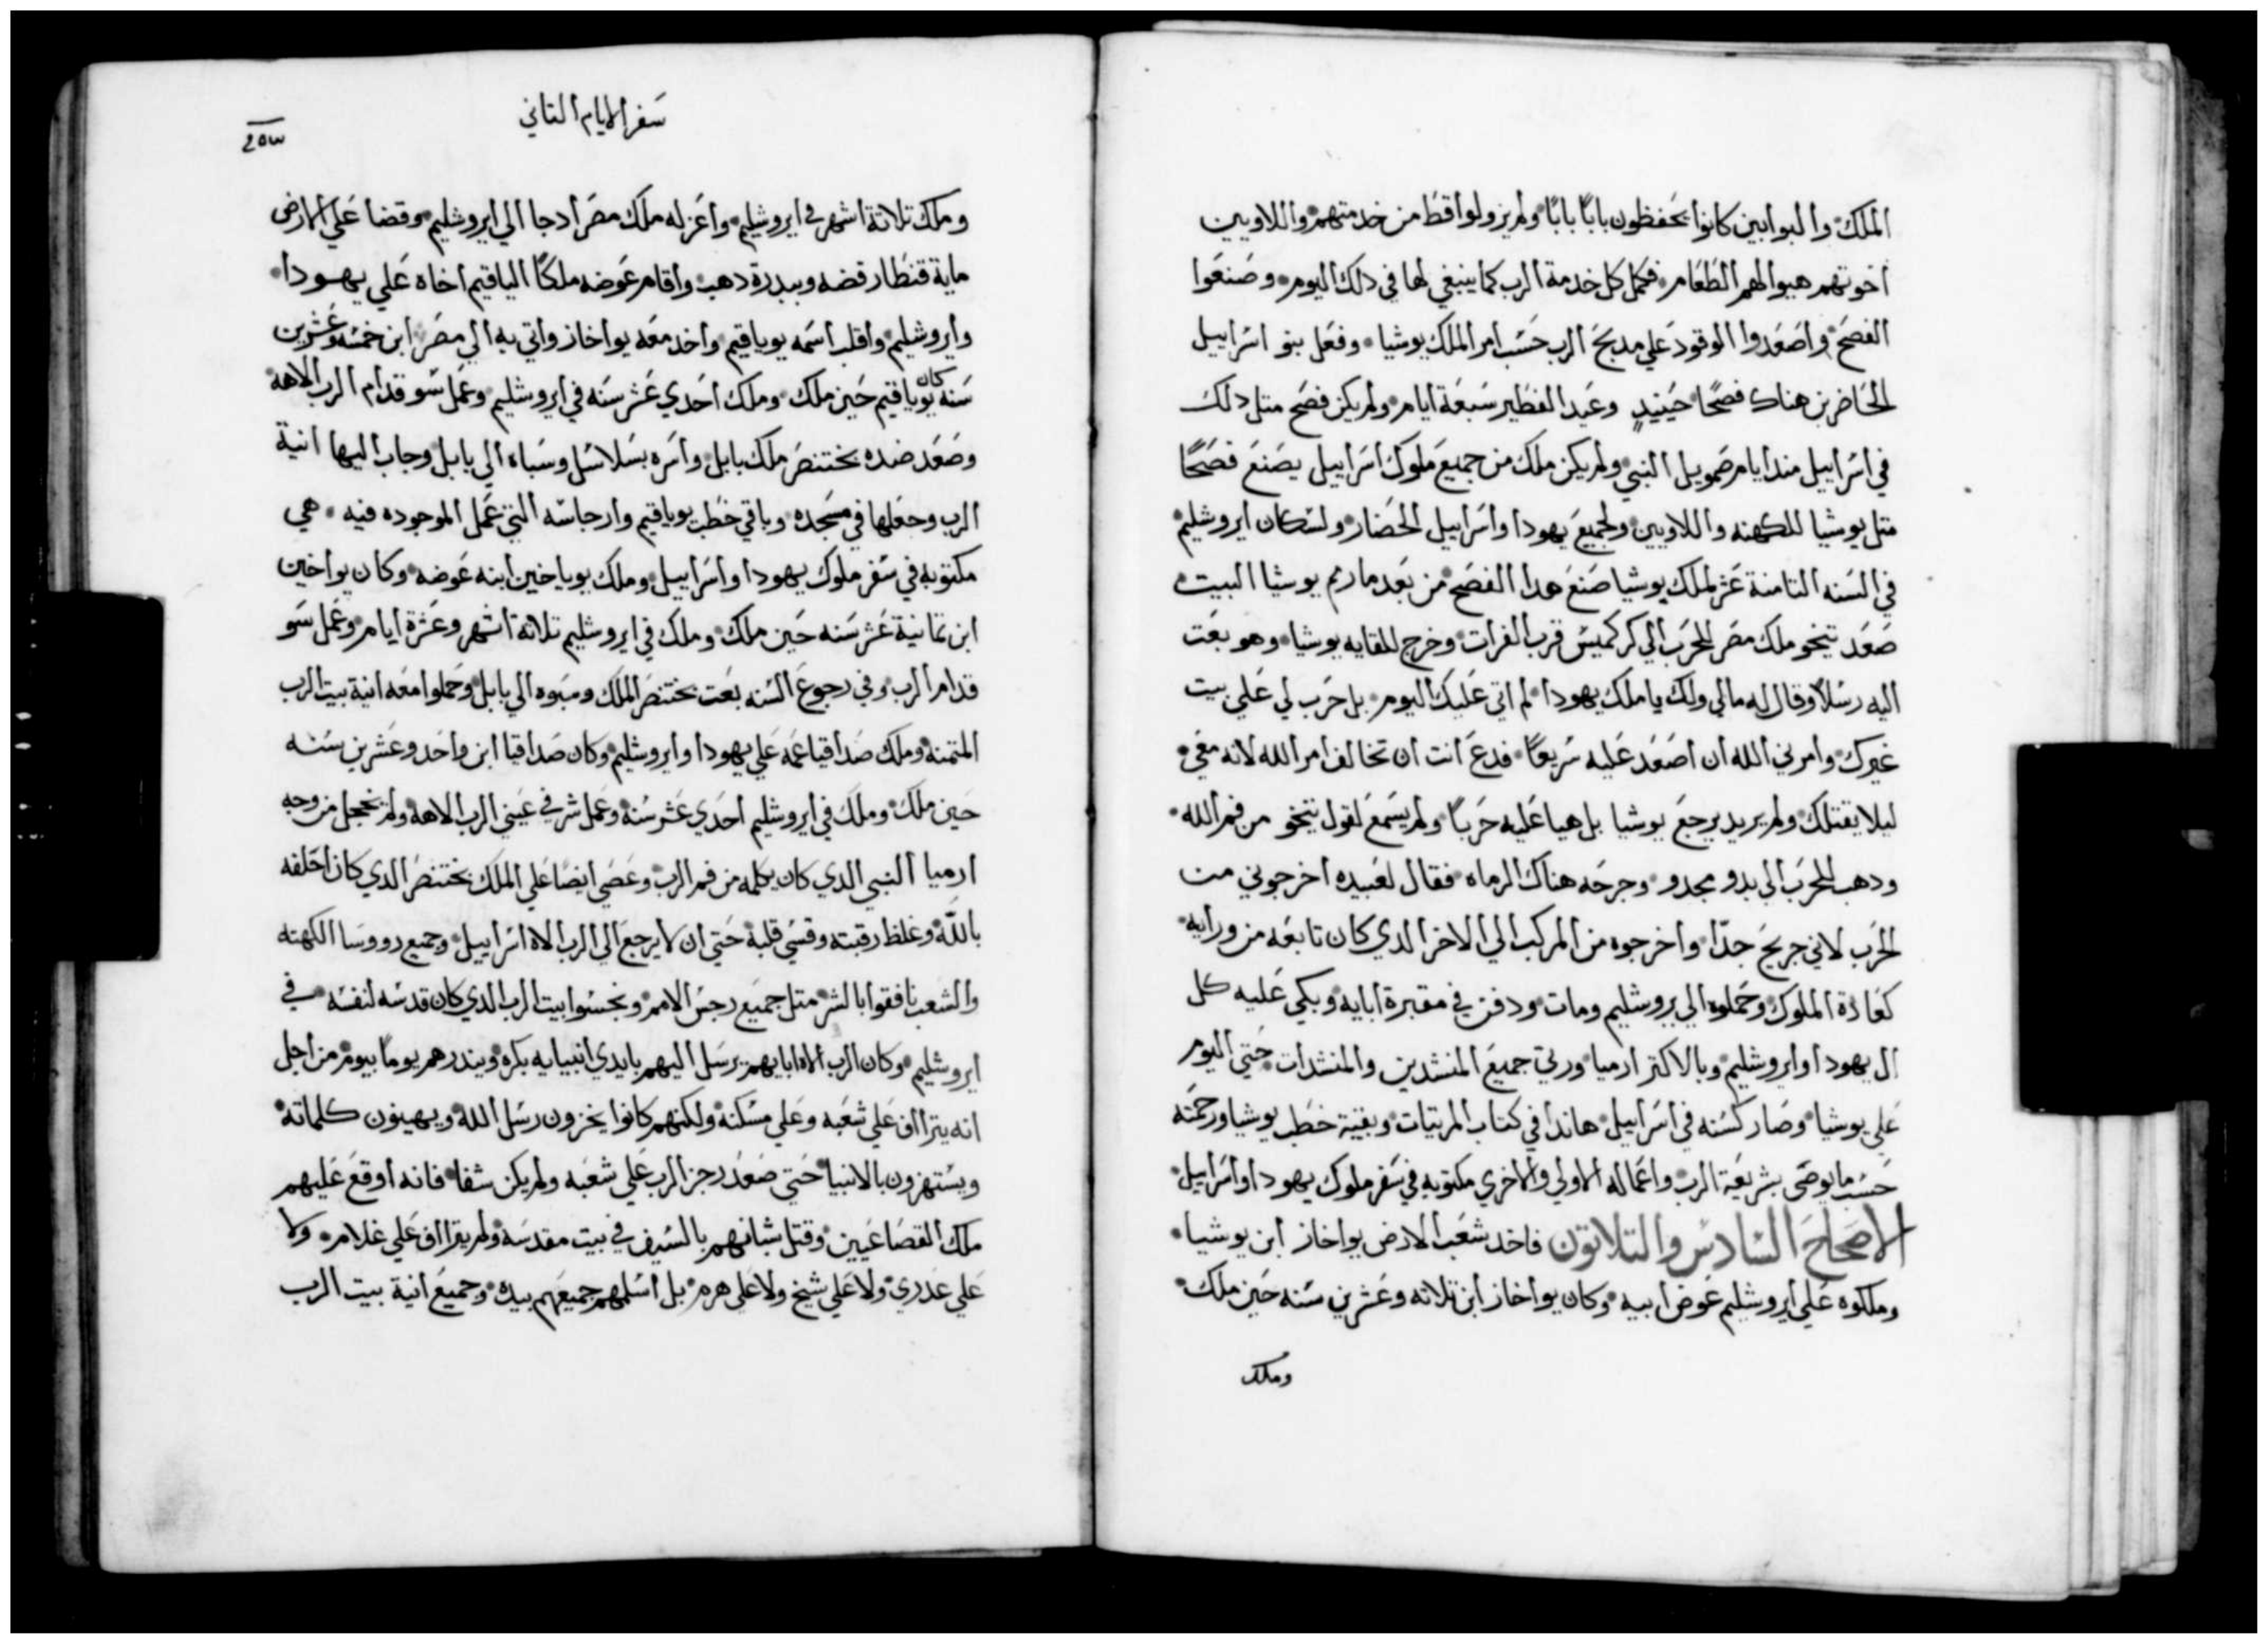 الملك والبوابين كانوا يحفظون بابًا بابًا ولم يزولوا قط من خدمتهم واللاويين
اخوتهم هيوا لهم الطعام فكمل كل خدمة الرب كما ينبغي لها في دلك اليوم وصنعوا
الفصح واصعدوا الوقود علي مدبح الرب حسب امر الملك يوشيا وفعل بنو اسراييل
الحاضرين هناك فصحًا حينيدٍ وعيد الفطير سبعة ايام ولم يكن فصح متل دلك
في اسراييل مند ايام صمويل النبي ولم يكن ملك من جميع ملوك اسراييل يصنع فصحًا
متل يوشيا للكهنه واللاويين ولجميع يهودا واسراييل الحضار ولسكان ايروشليم
في السنه التامنة عشر لملك يوشيا صنع هدا الفصح من بعد ما رم يوشيا البيت
صعد تيخو ملك مصر للحرب الي كركميس قرب الفرات وخرج للقايه يوشيا وهو بعت
اليه رسلًا وقال له مالي ولك يا ملك يهودا لم اتي عليك اليوم بل حرب لي علي بيت
غيرك وامرني الله ان اصعد عليه سريعًا فدع انت ان تخالف امر الله لانه معي
ليلا يقتلك ولم يريد يرجع يوشيا بل هيا عليه حربًا ولم يسمع لقول نيخو من فم الله
ودهب للحرب الي بدو مجدو وجرحه هناك الرماه فقال لعبيده اخرجوني من
الحرب لاني جريح جدًا واخرجوه من المركب الي الاخر الدي كان تابعه من ورايه
كعادة الملوك وحملوه الي يروشليم ومات ودفن في مقبرة ابايه وبكي عليه كل
ال يهودا وايروشليم وبالاكتر ارميا ورتي جميع المنشدين والمنشدات حتي اليوم
علي يوشيا وصار كسنه في اسراييل هاندا في كتاب المرتيات وبقية خطب يوشيا ورحمته
حسب ما يوصى بشريعة الرب واعماله الاولي والاخري مكتوبه في سفر ملوك يهودا واسراييل
الاصحاح السادس والتلاتون فاخد شعب الارض يواخاز ابن يوشيا
وملكوه علي ايروشليم عوض ابيه وكان يواخاز ابن تلاته وعشرين سنه حين ملك
وملك
سفر الايام التاني
٢٥٣
وملك تلاتة اشهر في ايروشليم واعزله ملك مصر ادجا الي ايروشليم وقضا علي الارض
ماية قنطار فضه وببدرة دهب واقام عوضه ملكًا الياقيم اخاه علي يهودا
وايروشليم واقلب اسمه يوياقيم واخد معه يواخاز واتي به الي مصر ابن خمسه وعشرين
سنه كان يوياقيم حين ملك وملك احدي عشر سنه في ايروشليم وعمل سو قدام الرب الاهه
وصعد ضده بختنصر ملك بابل واسره بسلاسل وسباه الي بابل وجاب اليها انية
الرب وجعلها في مسجده وباقي خطب يوياقيم وارجاسه التي عمل الموجوده فيه هي
مكتوبه في سفر ملوك يهودا واسراييل وملك يوياخين ابنه عوضه وكان يواخين
ابن تمانية عشر سنه حين ملك وملك في ايروشليم تلاتة اشهر وعشرة ايام وعمل سو
قدام الرب وفي رجوع السنه بعت بختنصر الملك وسبوه الي بابل وحملوا معه انية بيت الرب
المتمنه وملك صداقيا عمه علي يهودا وايروشليم وكان صداقيا ابن واحد وعشرين سنه
حين ملك وملك في ايروشليم احدي عشر سنة وعمل شر في عيني الرب الاهه ولم يخجل من وجه
ارميا النبي الدي كان يكلمه من فم الرب وعصي ايضًا علي الملك بختنصر الدي كان احلفه
بالله وغلظ رقبته وقسي قلبه حتي ان لا يرجع الي الرب الاه اسراييل وجميع رووسا الكهنه
والشعب نافقوا بالشر متل جميع رجس الامم ونجسوا بيت الرب الدي كان قدسه لنفسه في
ايروشليم وكان الرب الاه ابايهم يرسل اليهم بايدي انبيايه بكره ويندرهم يومًا بيوم من اجل
انه يتراف علي شعبه وعلي مسكنه ولكنهم كانوا يخزون رسل الله ويهينون كلماته
ويستهزون بالانبيا حتي صعد رجز الرب علي شعبه ولم يكن شفا فانه اوقع عليهم
ملك القصاعيين وقتل شبانهم بالسيف في بيت مقدسه ولم يتراف علي غلام ولا
علي عدري ولا علي شيخ ولا علي هرم بل اسلمهم جميعهم بيده وجميع انية بيت الرب